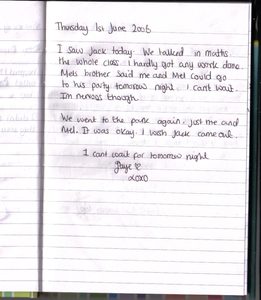 Thursday 1st June 2006
I saw Jack today. We talked in maths
the whole class. I hardly got any work done.
Mels brother said me and Mel could go
to his party tomorrow night. I cant wait.
Im nervous though.
We went to the park again, just me and
Mel. It was okay. I wish Jack came out.
I cant wait for tomorrow night
Jaye
xoxo